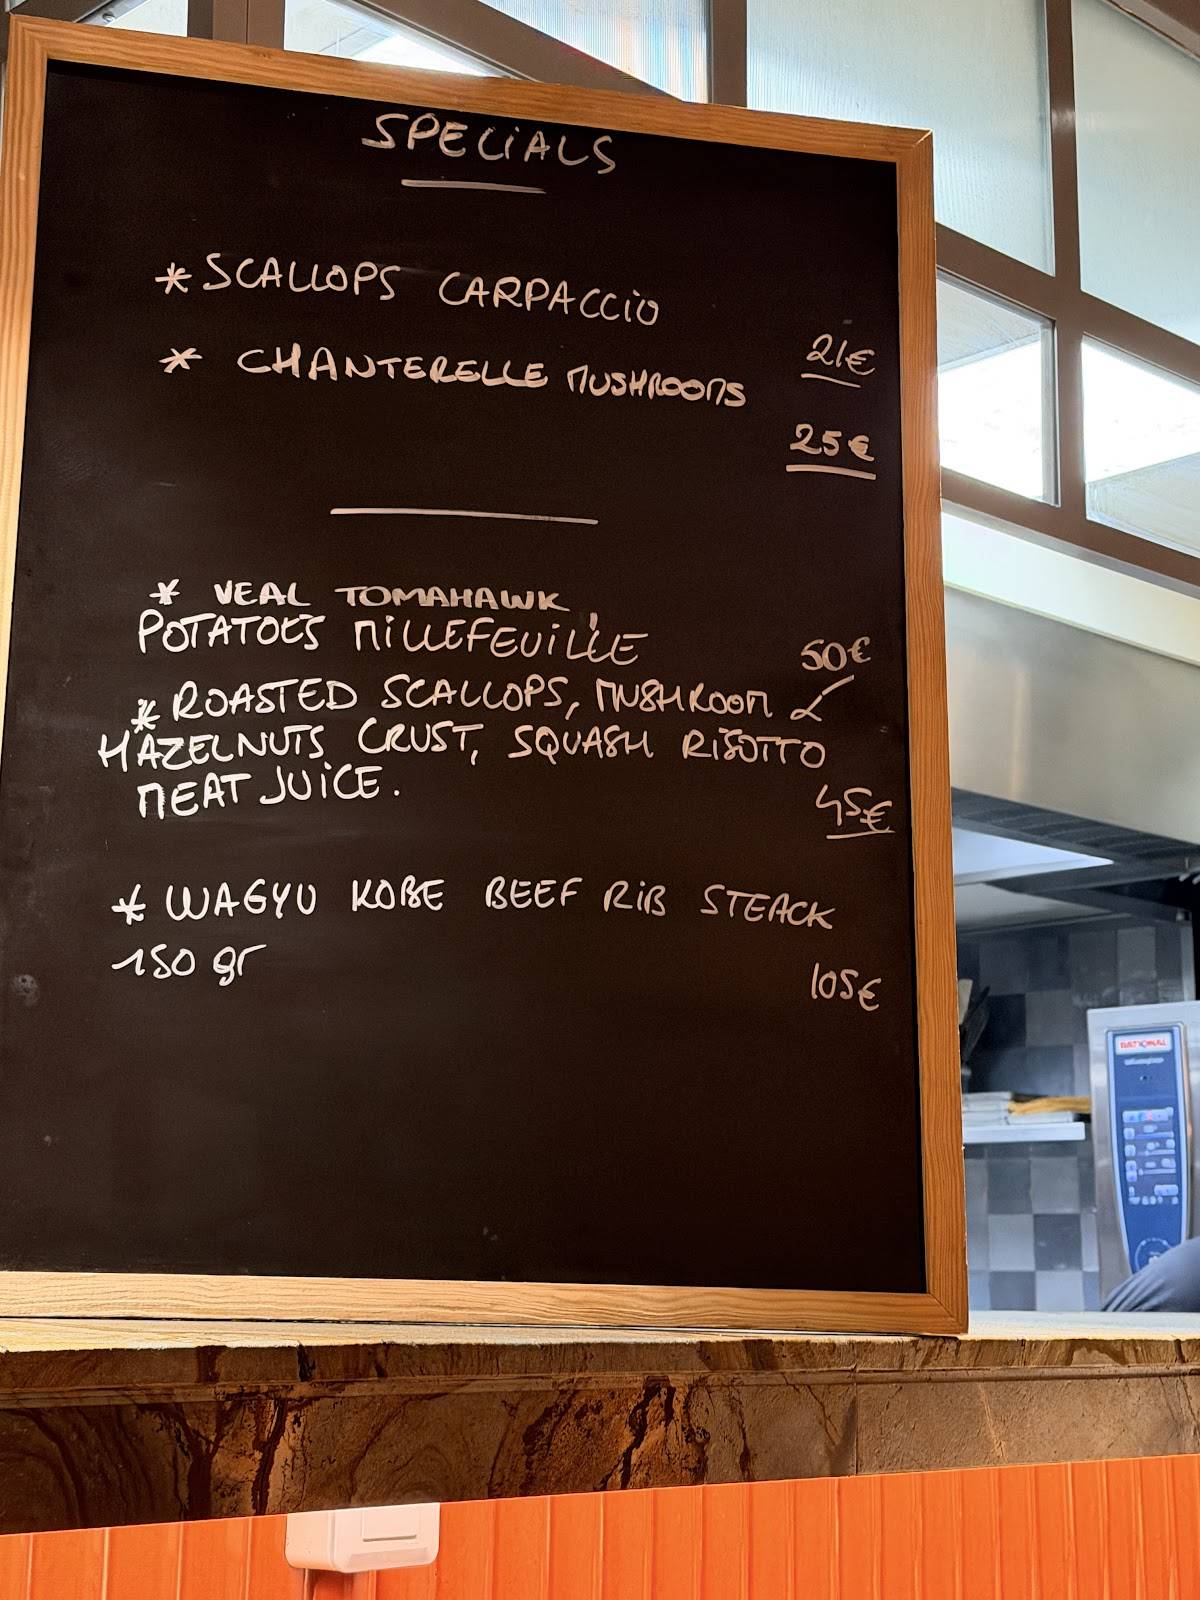 SPECIALS
* SCALLOPS CARPACCIO
21€
* CHANTERELLE MUSHROOMS
25€
* VEAL TOMAHAWK,
POTATOES MILLEFEUILLE
50€
* ROASTED SCALLOPS, MUSHROOM &
HAZELNUTS CRUST, SQUASH RISOTTO
MEAT JUICE.
45€
* WAGYU KOBE BEEF RIB STEACK
150 gr
105€
RATIONAL